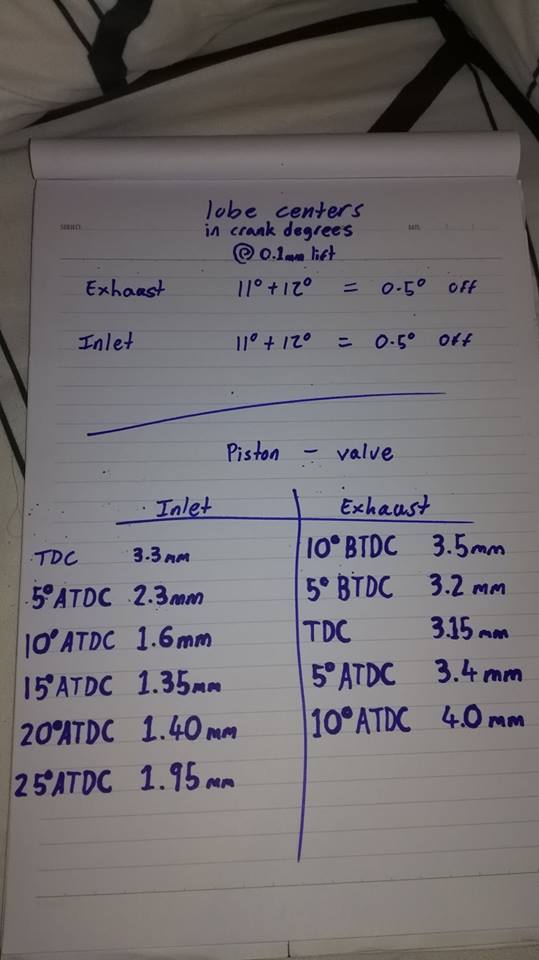 lobe centers
in crank degrees
@ 0.1mm lift
Exhaust 11° + 12° = 0.5° off
Inlet 11° + 12° = 0.5° off
Piston - valve
Inlet
TDC 3.3mm
5° ATDC 2.3mm
10° ATDC 1.6mm
15° ATDC 1.35mm
20° ATDC 1.40mm
25° ATDC 1.95mm
Exhaust
10° BTDC 3.5mm
5° BTDC 3.2 mm
TDC 3.15mm
5° ATDC 3.4mm
10° ATDC 4.0mm